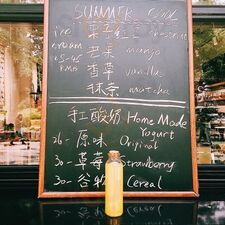 SUMMER
芒果 mango
25-45 香草 vanilla
RMB 抹茶 matcha
手工酸奶 Home Made
Yogurt
26- 原味 Original
30- 草莓 Strawberry
30- 谷物 Cereal